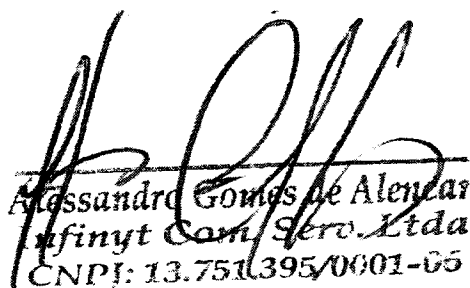 Alessandro Gomes de Alencar
Infinyt Com. Serv. Ltda
CNPJ: 13.751.395/0001-05